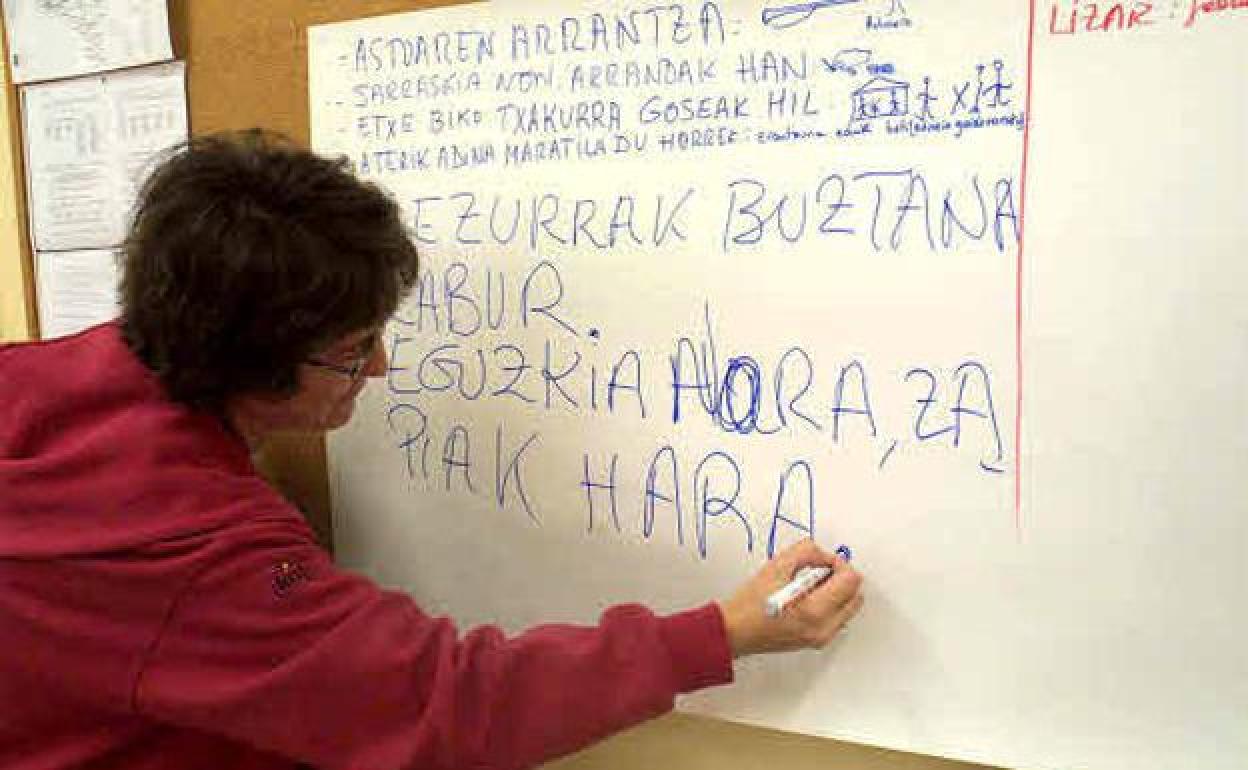 - ASTOAREN ARRANTZA:
- SARRASKIA NON, ARRANOAK HAN
- ETXE BIKO TXAKURRA GOSEAK HIL
ATERIK ADINA MARATILA DU HORREK:
EZURRAK BUZTANA
LABUR.
EGUZKIA NORA, ZA
PIAK HARA.
LIZAR: